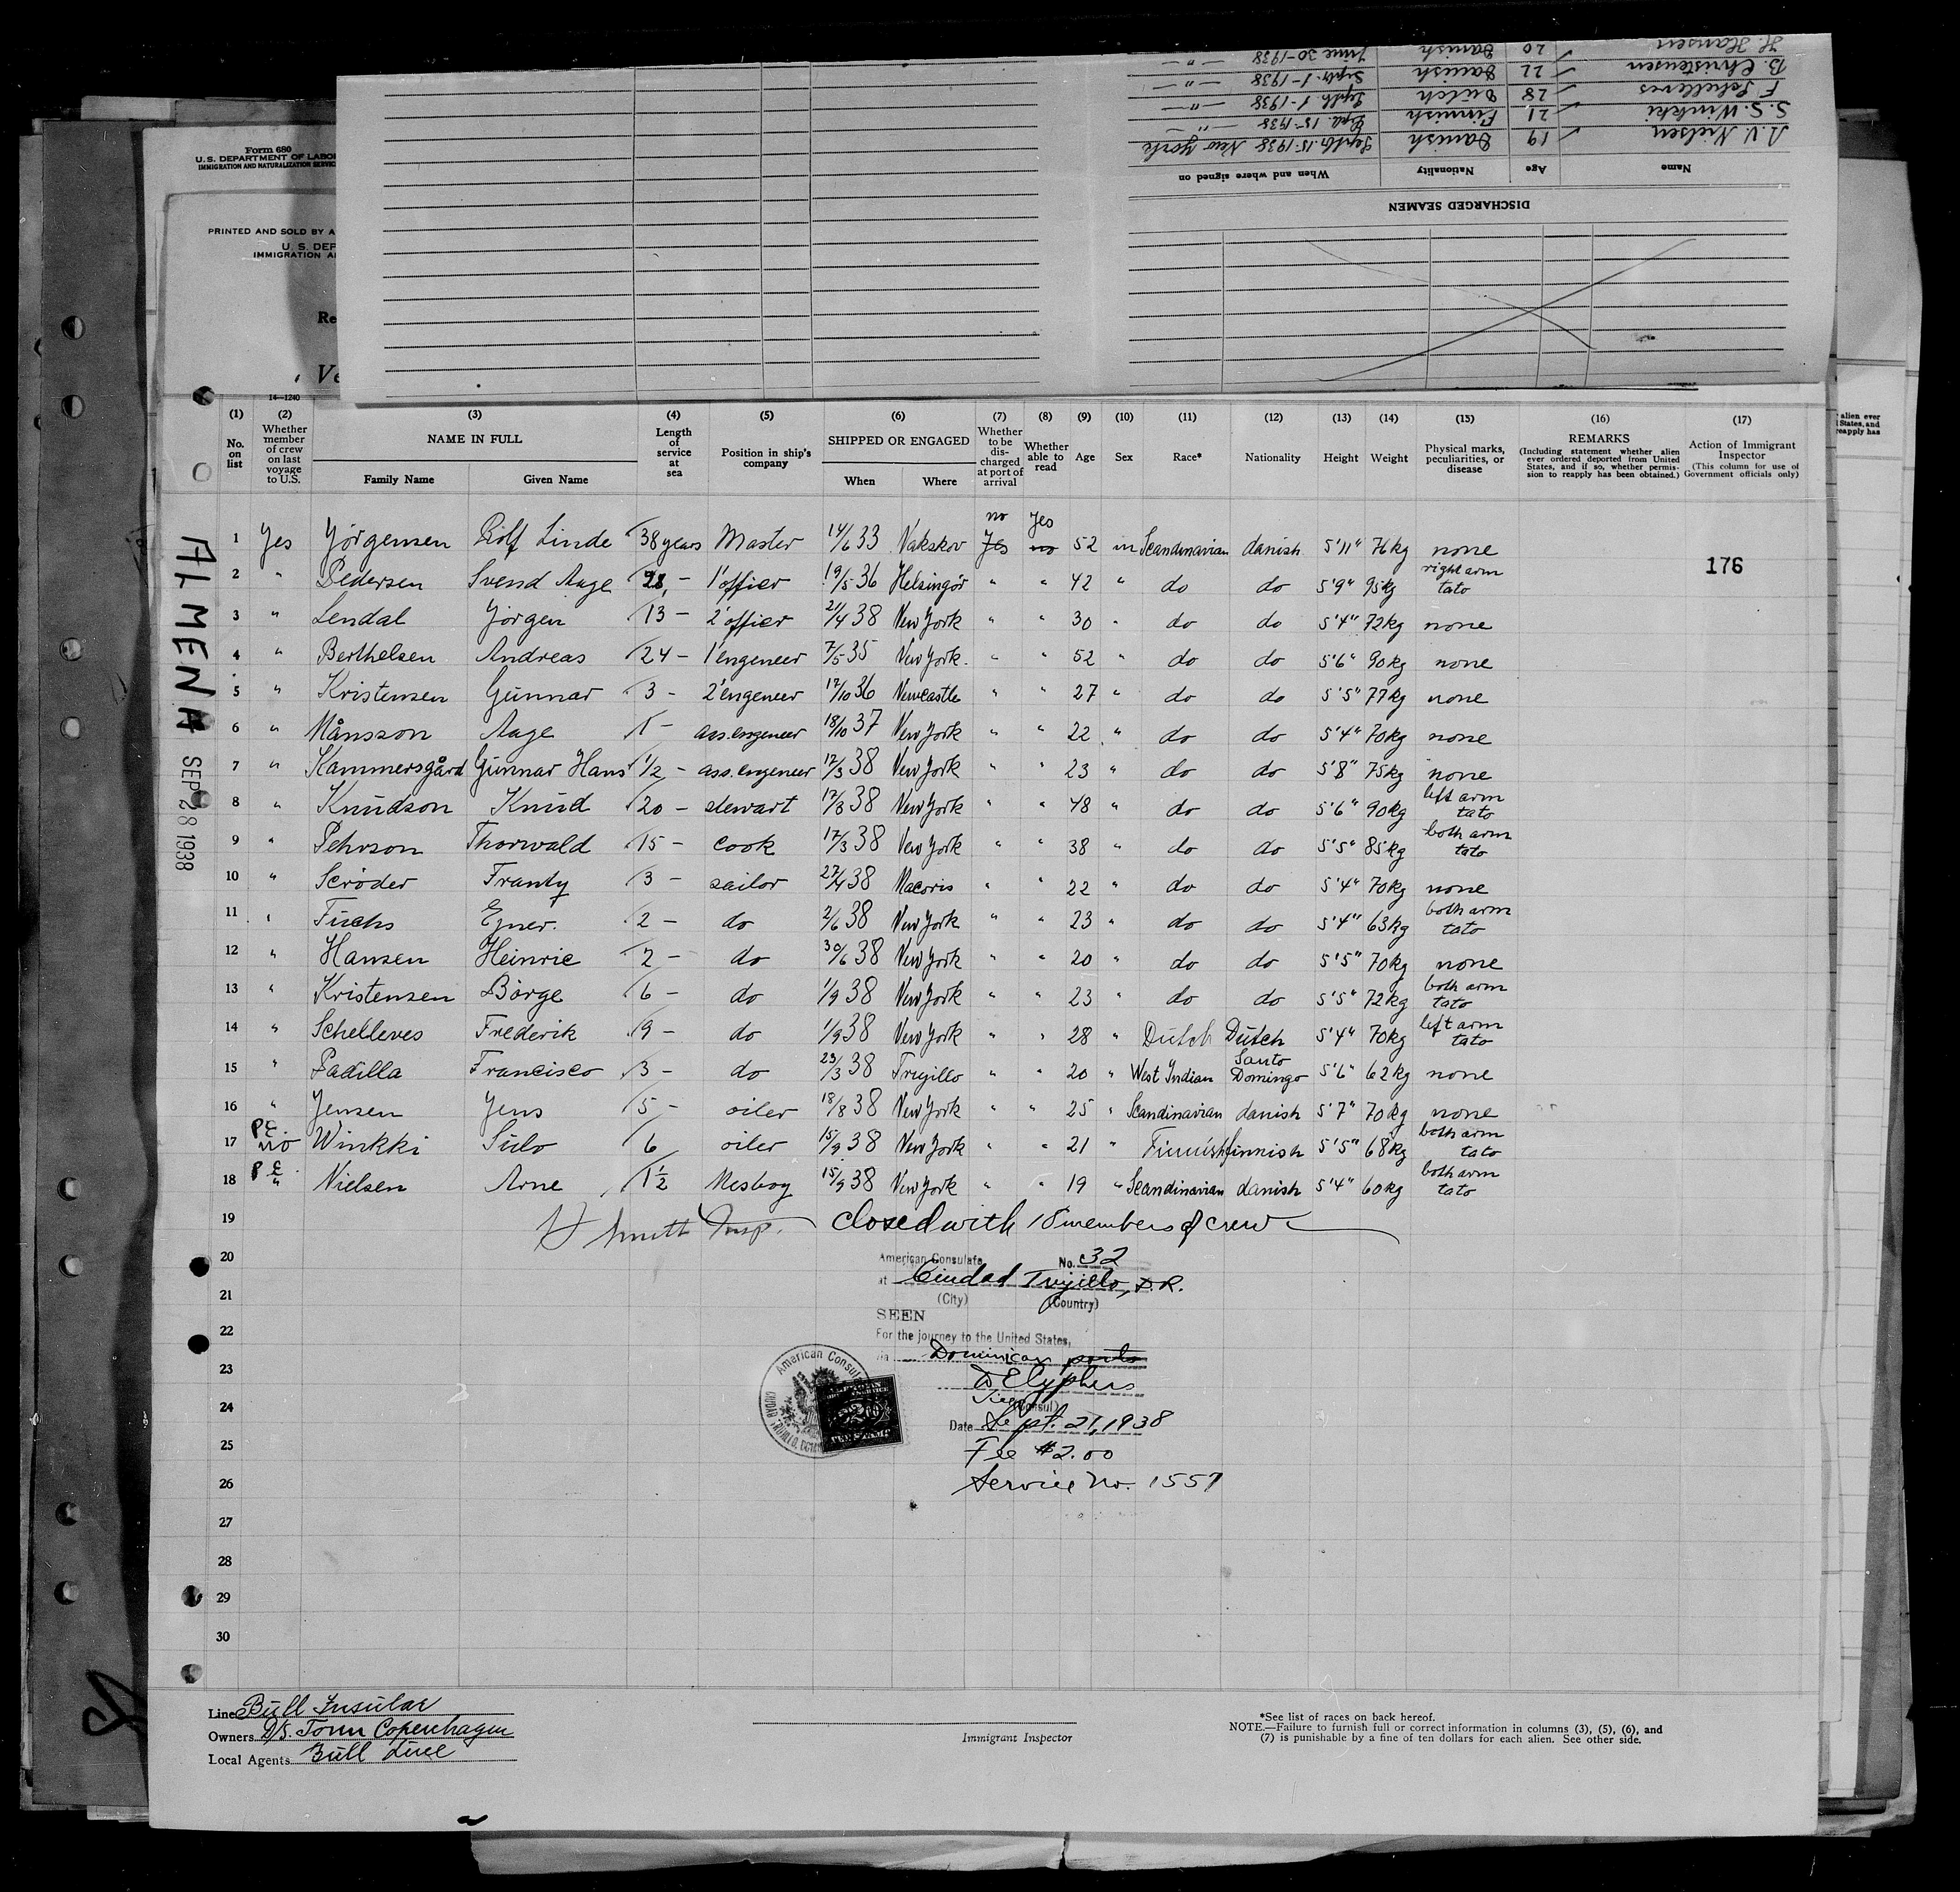 H. Hansen 20 Danish June 30-1938 — " —
B. Christensen 22 Danish Septr. 1-1938 — " —
F. Schelleves 28 Dutch Septb. 1-1938 — " —
S. S. Winkki 21 Finnish Sep. 15-1938 — " —
A. V. Nielsen 19 Danish Septbr. 15-1938 New York
Name Age Nationality When and where signed on
DISCHARGED SEAMEN
Form 680
U.S. DEPARTMENT OF LABOR
IMMIGRATION AND NATURALIZATION SERVICE
PRINTED AND SOLD BY A
U. S. DEP
IMMIGRATION A
Re
Ve
14—1240
alien ever
States, and
reapply has
(1) (2) (3) (4) (5) (6) (7) (8) (9) (10) (11) (12) (13) (14) (15) (16) (17)
No. on list
Whether member of crew on last voyage to U.S.
NAME IN FULL
Family Name Given Name
Length of service at sea
Position in ship's company
SHIPPED OR ENGAGED
When Where
Whether to be discharged at port of arrival
Whether able to read
Age Sex Race* Nationality Height Weight
Physical marks, peculiarities, or disease
REMARKS
(Including statement whether alien ever ordered deported from United States, and if so, whether permission to reapply has been obtained.)
Action of Immigrant Inspector
(This column for use of Government officials only)
ALMENA SEP 28 1938
no Yes
1 Yes Jörgensen Rolf Linde 38 years Master 14/6 33 Nakskov Yes no 52 m Scandinavian danish 5'11" 76 kg none
176
2 " Pedersen Svend Aage 28 - 1' officr 19/5 36 Helsingör " " 42 " do do 5'9" 95kg right arm tato
3 " Lendal Jörgen 13 - 2' officr 21/4 38 New York " " 30 " do do 5'4" 72kg none
4 " Berthelsen Andreas 24 - 1' engeneer 7/5 35 New York. " " 52 " do do 5'6" 90kg none
5 " Kristensen Gunnar 3 - 2' engeneer 12/10 36 Newcastle " " 27 " do do 5'5" 77kg none
6 " Månsson Aage 1 - ass. engeneer 18/10 37 New York " " 22 " do do 5'4" 70kg none
7 " Kammersgård Gunnar Hans 1/2 - ass. engeneer 17/3 38 New York " " 23 " do do 5'8" 75kg none
8 " Knudson Knud 20 - stewart 17/3 38 New York " " 48 " do do 5'6" 90kg left arm tato
9 " Pehrson Thorwald 15 - cook 17/3 38 New York " " 38 " do do 5'5" 85kg both arm tato
10 " Scröder Frantz 3 - sailor 27/4 38 Macoris " " 22 " do do 5'4" 70kg none
11 " Fuchs Ejner. 2 - do 2/6 38 New York " " 23 " do do 5'4" 63kg both arm tato
12 " Hansen Heinric 2 - do 30/6 38 New York " " 20 " do do 5'5" 70kg none
13 " Kristensen Börge 6 - do 1/9 38 New York " " 23 " do do 5'5" 72kg both arm tato
14 " Schelleves Frederik 9 - do 1/9 38 New York " " 28 " Dutch Dutch 5'4" 70kg left arm tato
15 " Padilla Francisco 3 - do 23/3 38 Trujillo " " 20 " West Indian Santo Domingo 5'6" 62kg none
16 " Jensen Jens 5 - oiler 18/8 38 New York " " 25 " Scandinavian danish 5'7" 70kg none
17 P.E. no Winkki Sulo 6 oiler 15/9 38 New York " " 21 " Finnish finnish 5'5" 68kg both arm tato
18 P.E. " Nielsen Arne 1 1/2 Mesboy 15/9 38 New York " " 19 " Scandinavian danish 5'4" 60kg both arm tato
19 Smith Insp. closed with 18 members of crew
20 American Consulate No. 32
21 at Ciudad Trujillo, D.R.
(City) (Country)
SEEN
22 For the journey to the United States,
Via Dominican ports
23
24 (Consul)
Date Sept. 21, 1938
25 Fee $2.00
26 Service No. 1557
American Consul
27
28
29
30
Line Bull Insular
Owners D/S. Torm Copenhagen
Local Agents Bull Line
Immigrant Inspector
*See list of races on back hereof.
NOTE.—Failure to furnish full or correct information in columns (3), (5), (6), and
(7) is punishable by a fine of ten dollars for each alien. See other side.